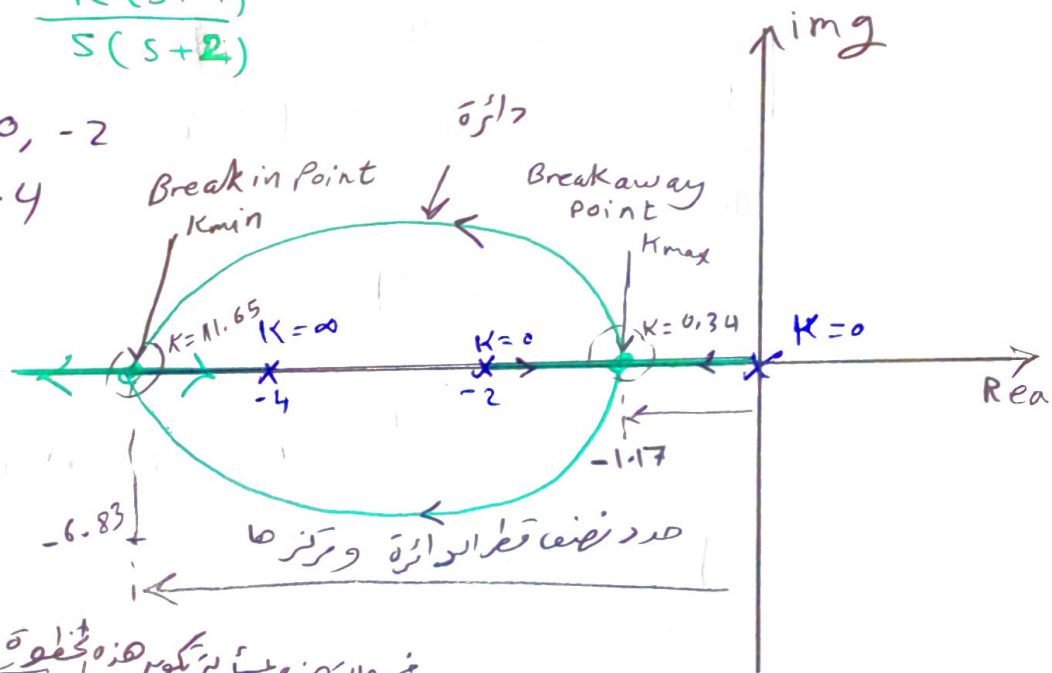 S(S+2)
img
0, -2
دائرة
-4
Break in Point
Kmin
Breakaway
Point
Kmax
K=11.65
K=∞
K=0
K=0.34
K=0
-4
-2
Rea
-1.17
-6.83
حدد نصف قطر الدائرة ومركزها
هذه الخطوة